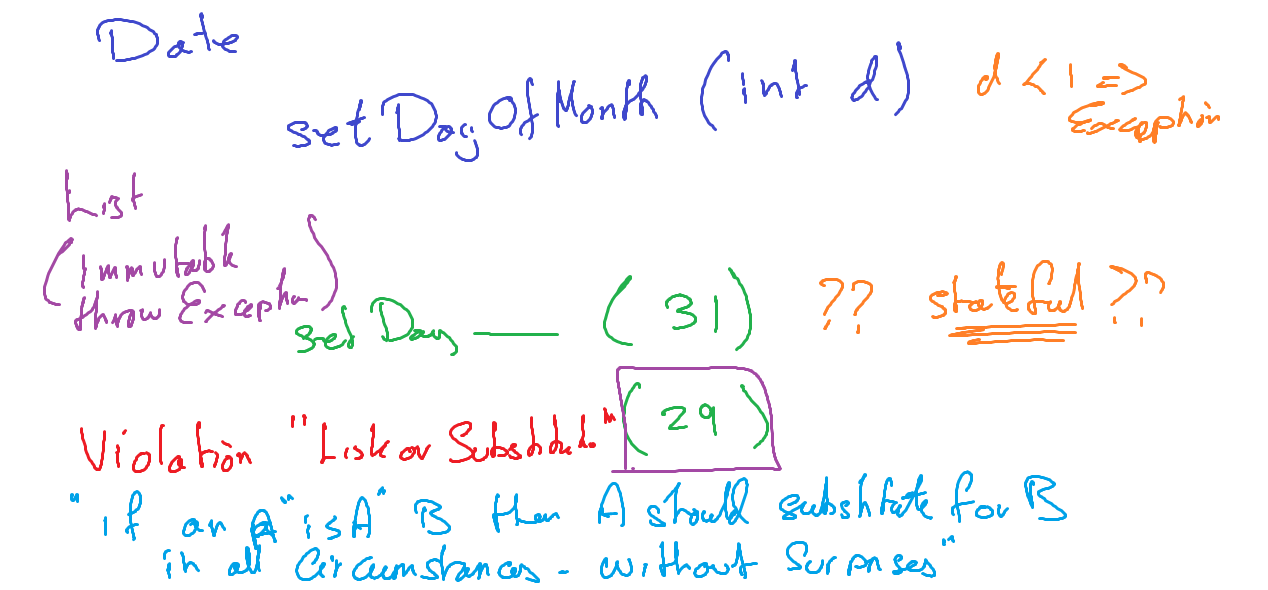 Date
setDayOfMonth (int d)
d < 1 =>
Exception
List
(Immutable
throw Exception)
set Day —— (31) ?? stateful ??
(29)
Violation "Liskov Substitution"
"if an A "isA" B then A should substitute for B
in all Circumstances - without Surprises"